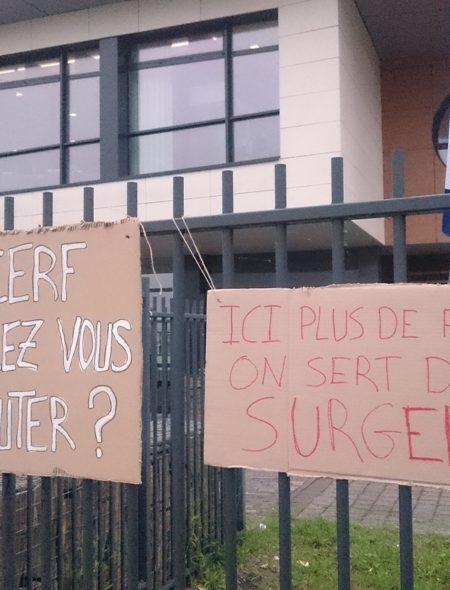 CERF
LEZ VOUS
UTER ?
ICI PLUS DE
ON SERT D
SURGE